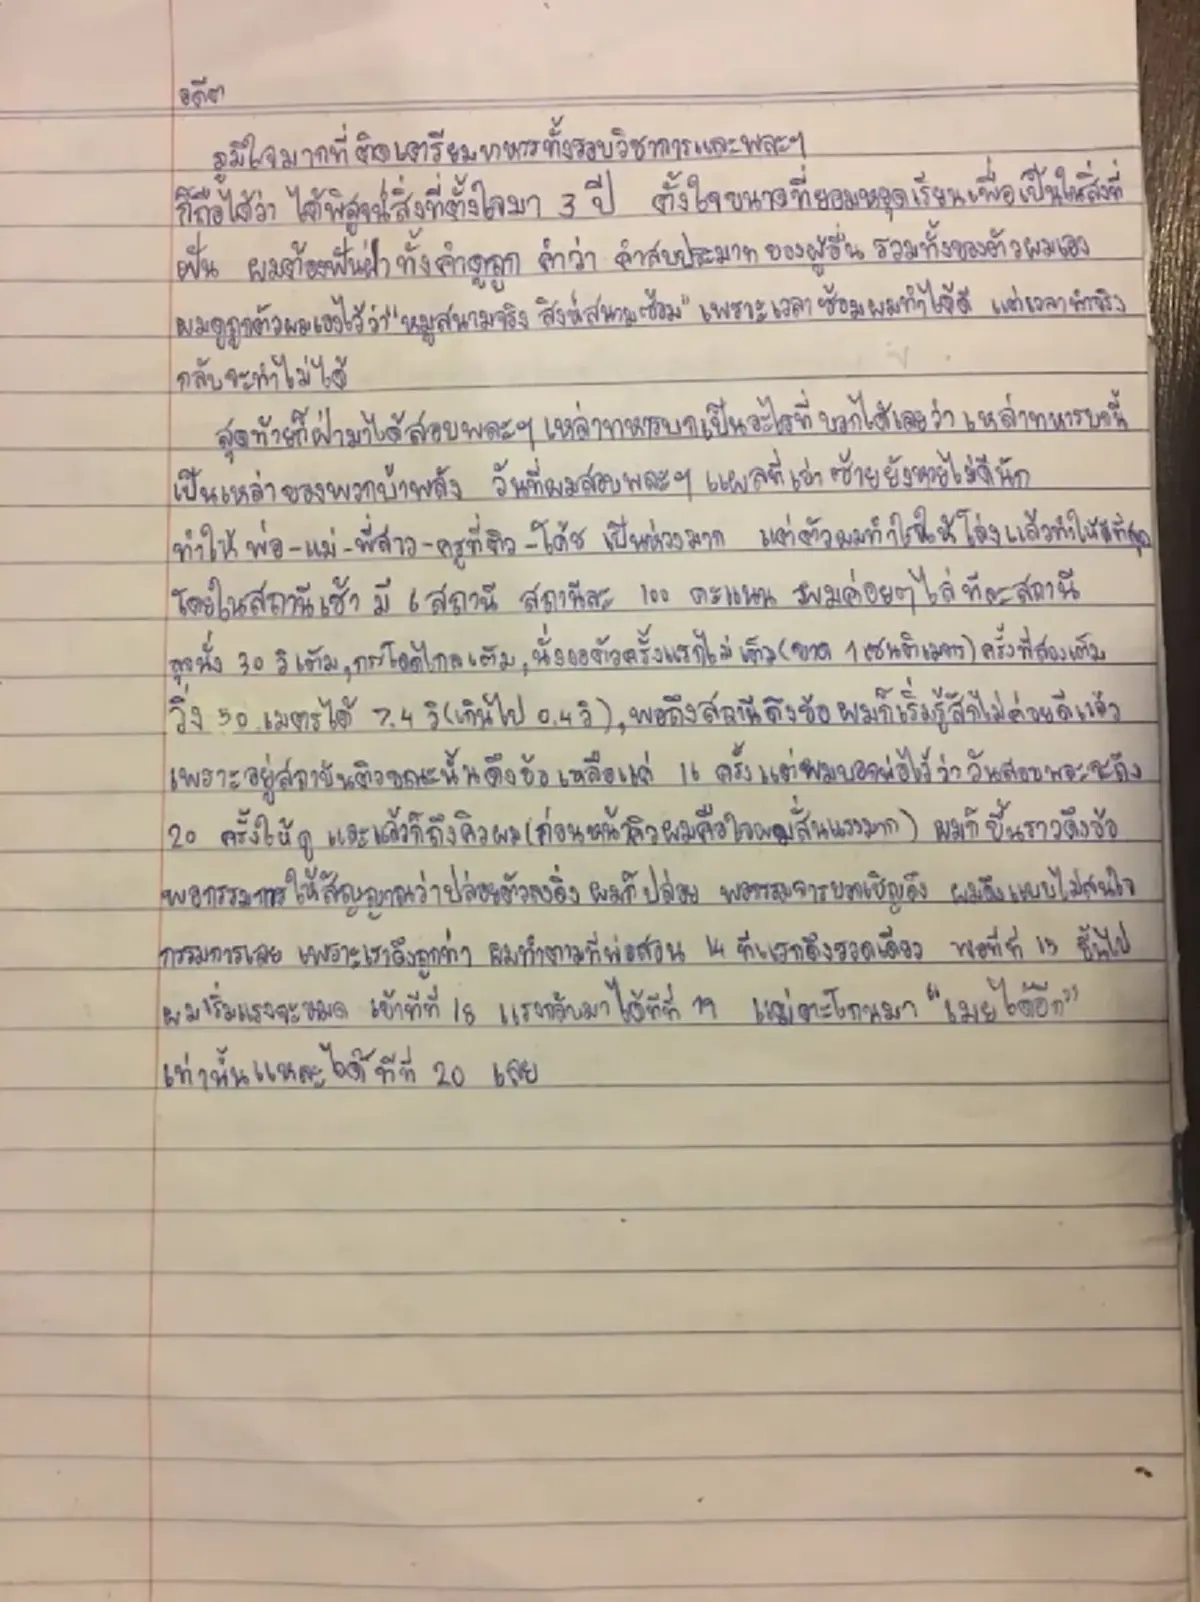 อดีต
ภูมิใจมากที่ ติดเตรียมทหารทั้งรอบวิชาการและพละฯ
ก็ถือได้ว่า ได้พิสูจน์สิ่งที่ตั้งใจมา 3 ปี ตั้งใจขนาดที่ยอมหยุดเรียนเพื่อเป็นในสิ่งที่
ฝัน ผมต้องฟันฝ่า ทั้งคำดูถูก คำว่า คำสบประมาท ของผู้อื่น รวมทั้งของตัวผมเอง
ผมดูถูกตัวผมเองไว้ว่า "หมูสนามจริง สิงห์สนามซ้อม" เพราะเวลาซ้อมผมทำได้ดี แต่เวลาทำจริง
กลับจะทำไม่ได้
สุดท้ายก็ฝ่ามาได้สอบพละฯ เหล่าทหารบกเป็นอะไรที่ บอกได้เลยว่า เหล่าทหารบกนี้
เป็นเหล่าของพวกบ้าพลัง วันที่ผมสอบพละฯ แผลที่เข่าซ้ายยังหายไม่ดีนัก
ทำให้ พ่อ-แม่-พี่สาว-ครูที่ติว-โค้ช เป็นห่วงมาก แต่ตัวผมทำใจให้โล่งแล้วทำให้ดีที่สุด
โดยในสถานีเช้า มี 6 สถานี สถานีละ 100 คะแนน ผมค่อยๆไล่ทีละสถานี
ลุกนั่ง 30 วิเต็ม, กระโดดไกลเต็ม, นั่งงอตัวครั้งแรกไม่เต็ม(ขาด 1 เซนติเมตร) ครั้งที่สองเต็ม
วิ่ง 50 เมตรได้ 7.4 วิ(เกินไป 0.4 วิ), พอถึงสถานีดึงข้อ ผมก็เริ่มรู้สึกไม่ค่อยดีแล้ว
เพราะอยู่สถาบันติวขณะนั้นดึงข้อ เหลือแค่ 16 ครั้ง แต่ผมบอกพ่อไว้ว่า วันสอบพละจะดึง
20 ครั้งให้ดู และแล้วก็ถึงคิวผม(ก่อนหน้าคิวผมคือใจผมสั่นแรงมาก) ผมก็ขึ้นราวดึงข้อ
พอกรรมการให้สัญญาณว่าปล่อยตัวลงดิ่ง ผมก็ปล่อย พอกรรมการบอกเชิญดึง ผมดึงแบบไม่สนใจ
กรรมการเลย เพราะเราดึงถูกท่า ผมทำตามที่พ่อสอน 14 ทีแรกดึงรวดเดียว พอทีที่ 15 ขึ้นไป
ผมเริ่มแรงจะหมด เข้าทีที่ 18 แรงกลับมาได้ทีที่ 19 แม่ตะโกนมา "เมย์ได้อีก"
เท่านั้นแหละได้ทีที่ 20 เลย